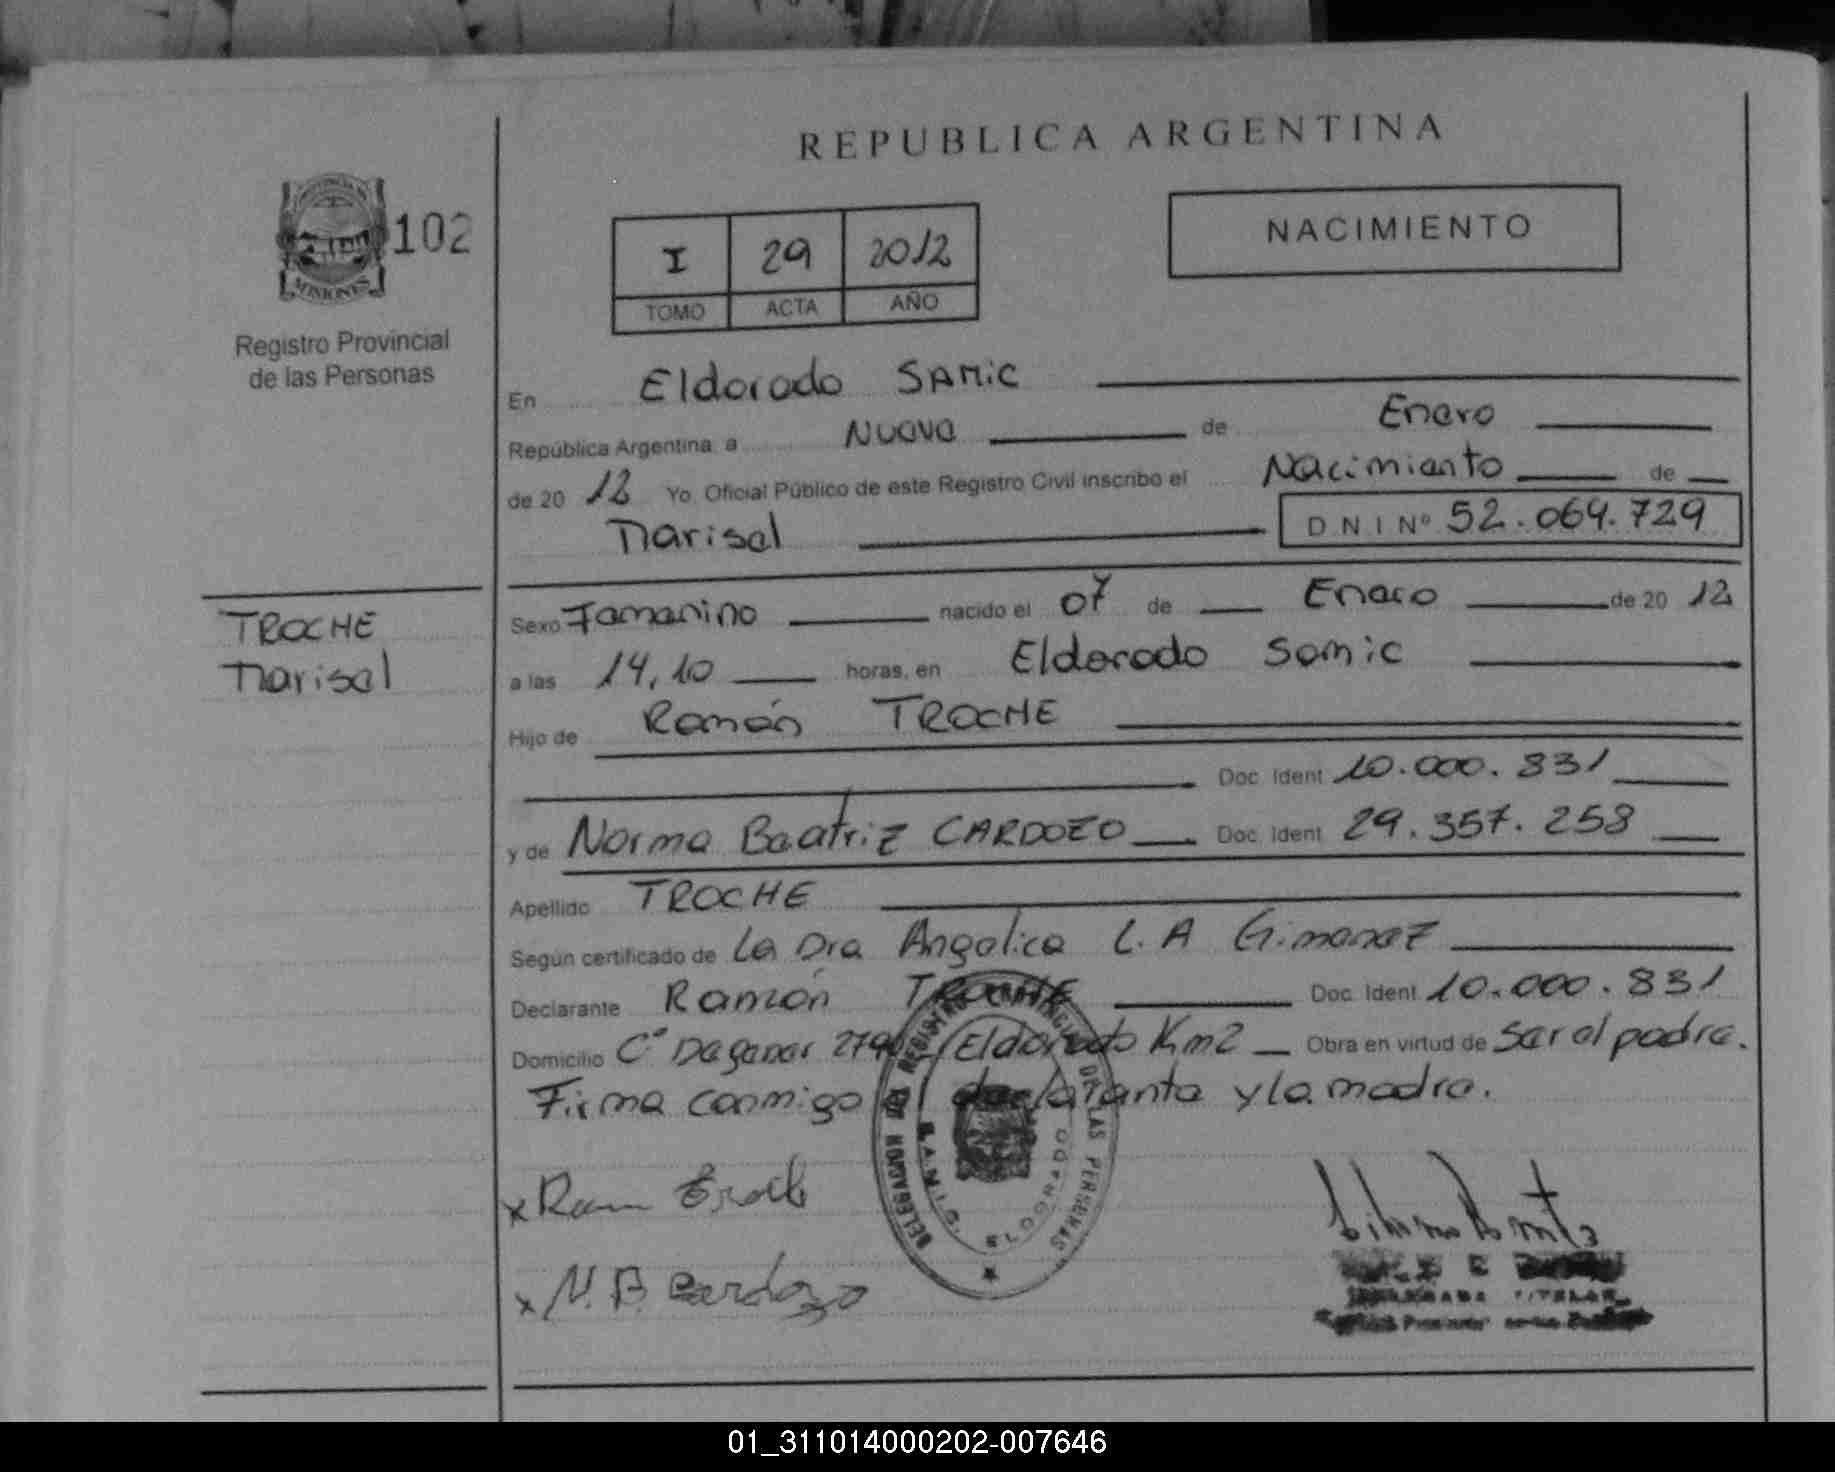 REPUBLICA ARGENTINA
PROVINCIA DE
MISIONES
102
Registro Provincial
de las Personas
I 29 2012
TOMO ACTA AÑO
NACIMIENTO
En Eldorado SAMIC
República Argentina, a Nueve de Enero
de 20 12 Yo, Oficial Público de este Registro Civil inscribo el Nacimiento de
Marisel
D N I Nº 52.064.729
TROCHE
Marisel
Sexo Femenino nacido el 07 de Enero de 20 12
a las 14,10 horas, en Eldorado Samic
Hijo de Ramón TROCHE
Doc. Ident 10.000.831
y de Norma Beatriz CARDOZO Doc. Ident 29.357.258
Apellido TROCHE
Según certificado de La Dra Angelica L.A Gimenez
Declarante Ramón TROCHE Doc. Ident 10.000.831
Domicilio Cº Eldorado Km2 Obra en virtud de Ser el padre.
Firma conmigo el declarante y la madre.
DELEGACION DEL REGISTRO PROVINCIAL DE LAS PERSONAS
S.A.M.I.C. ELDORADO
x Ram
x N. B. Cardozo
TITULAR
01_311014000202-007646